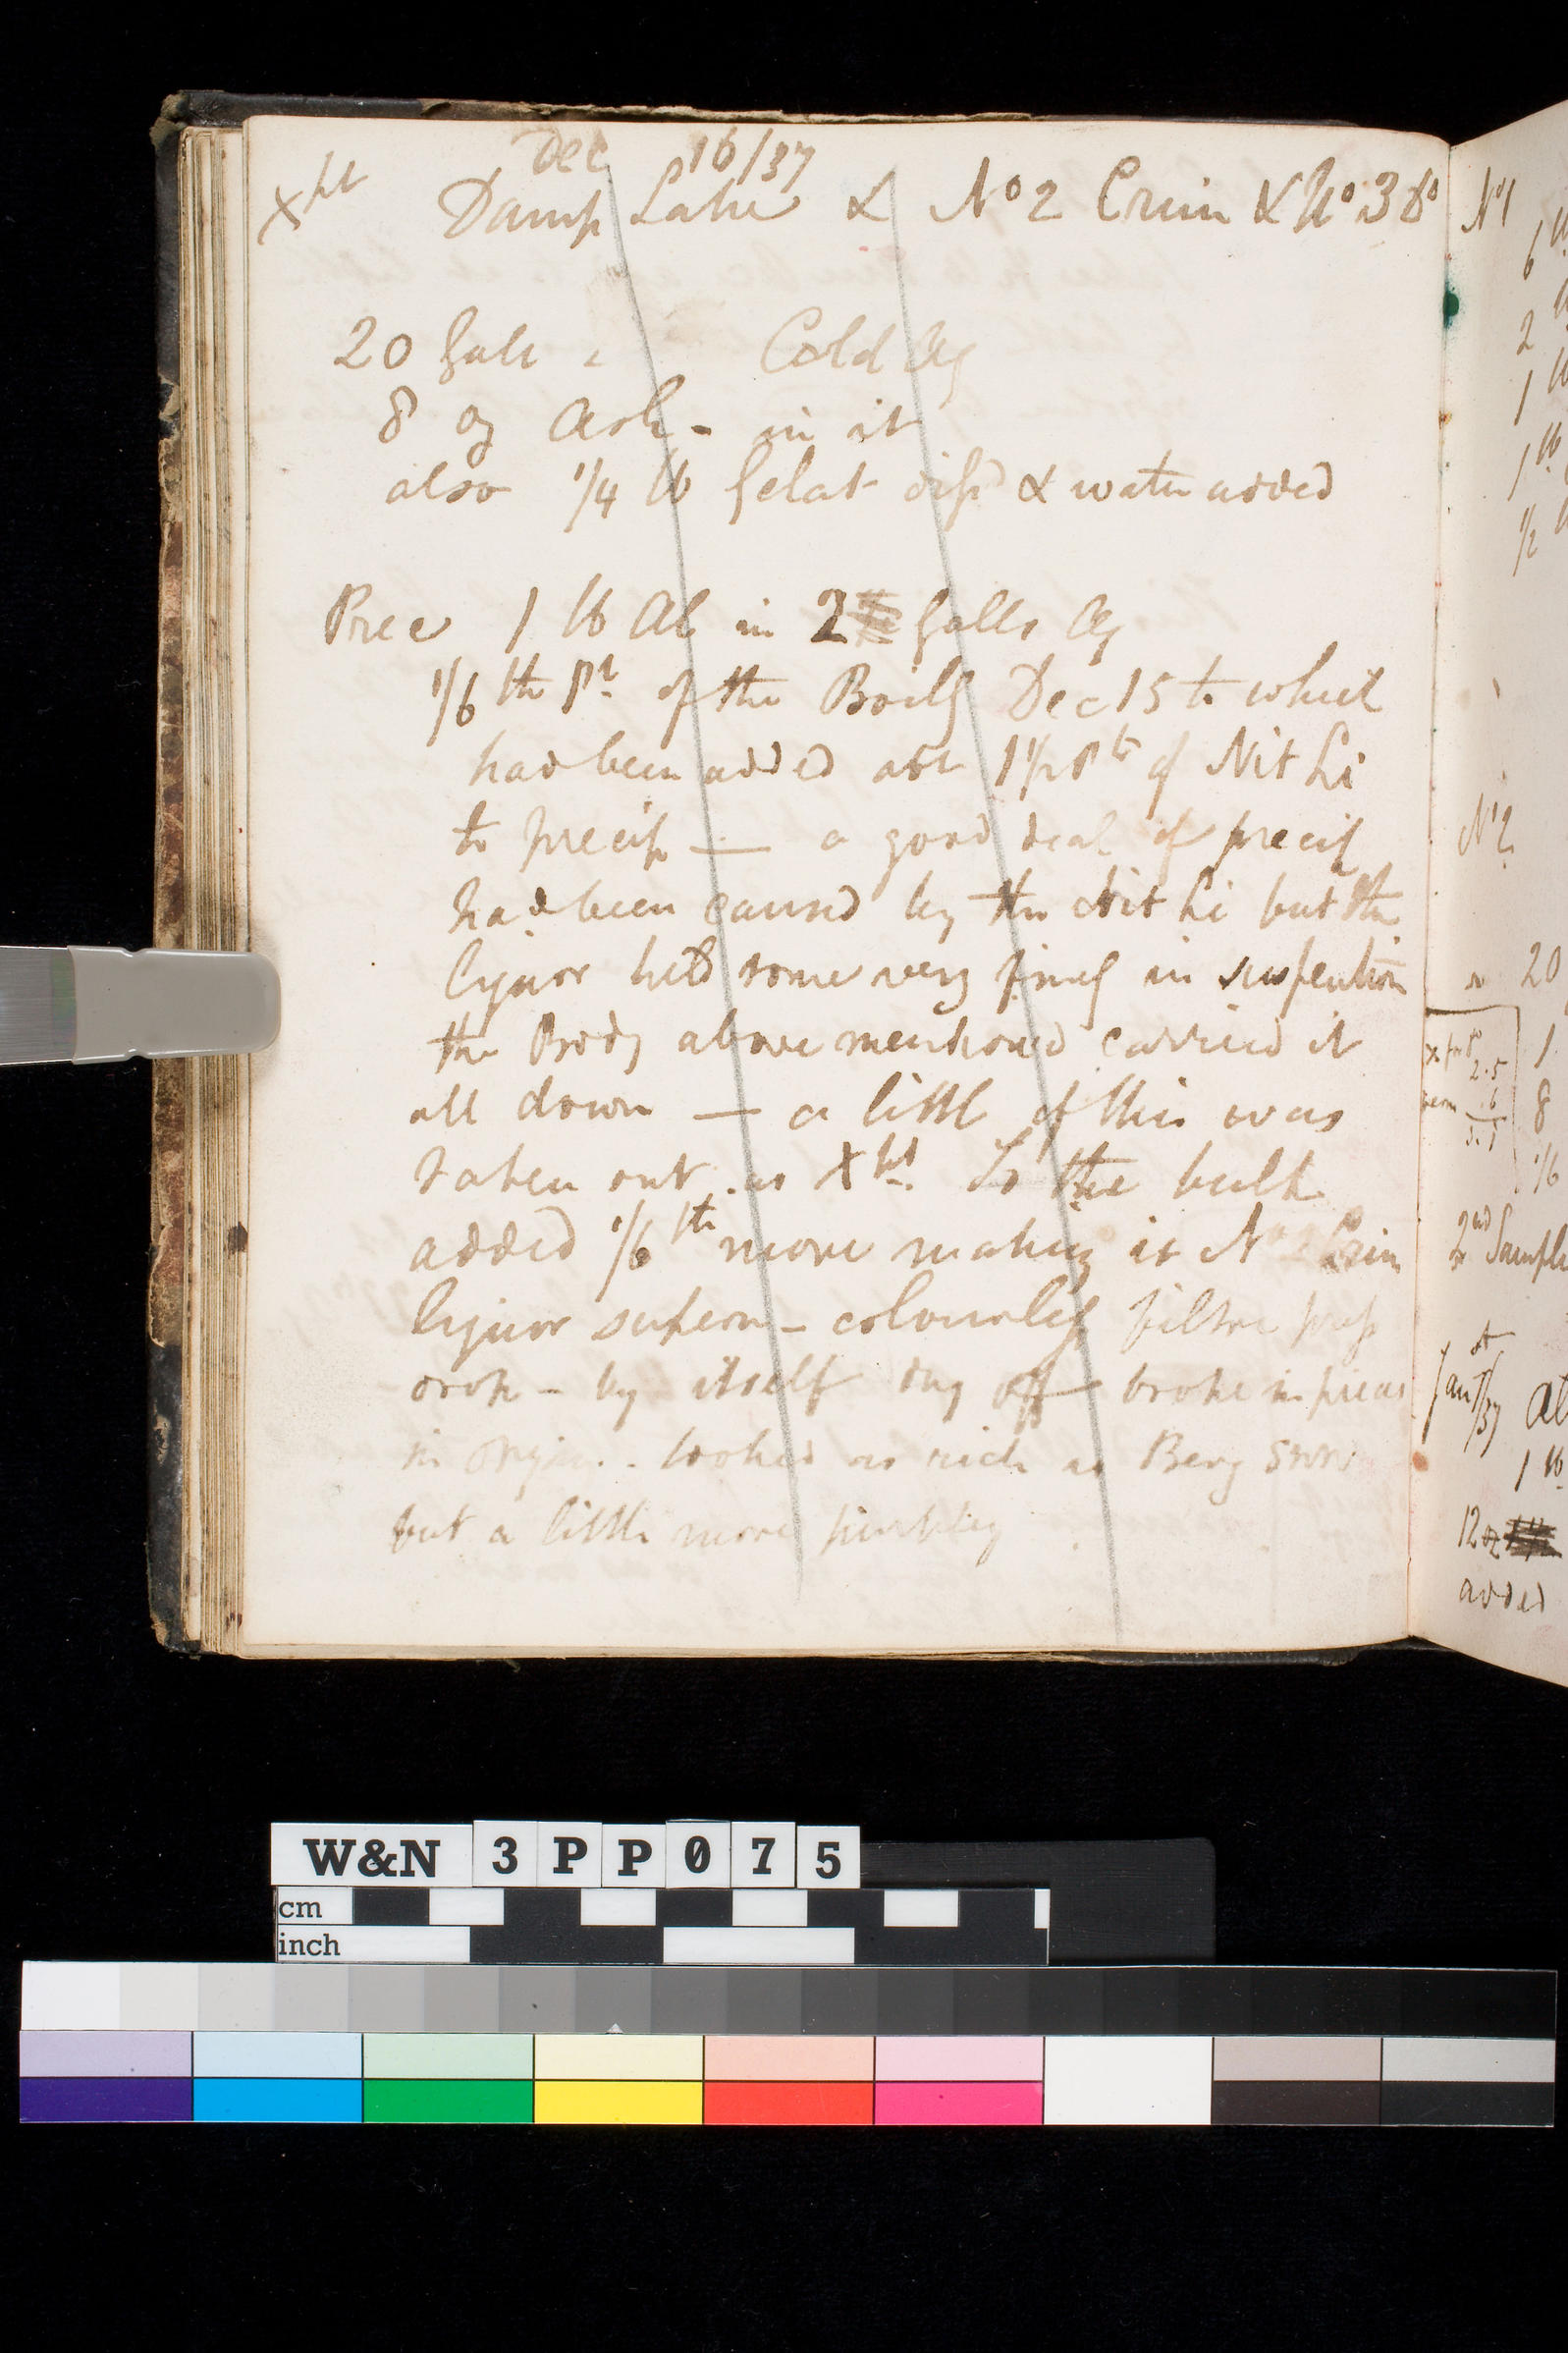 Dec 16/37
Xpt Damp Lake & No 2 Crim & No 3 Do
20 Galls Cold Aq
8 oz Ash - in it
also 1/4 lb Gelat diss & water added
Prec 1 lb Al in 2 Galls Aq
1/6th Pt of the Boilg Dec 15 to which
had been added abt 1 1/2 Pts of Nit Li
to precip — a good deal of precip
had been caused by the Nit Li but the
liquor held some very fine in suspention
the Body above mentioned carried it
all down — a little of this was
taken out as Xpt. To the bulk
added 1/6th more making it No 2 Crim
liquor supern - colourless filter press
drop - by itself dry off broke in pieces
looked as rich as
but a little more
No 1
6 lb
2
1 lb
1 lb
1/2
No 2
20
2.5
.6
3.1
1
8
1/6
2nd Sample
Jan /37 at
1 lb
12 oz
added
W&N 3PP075
cm
inch